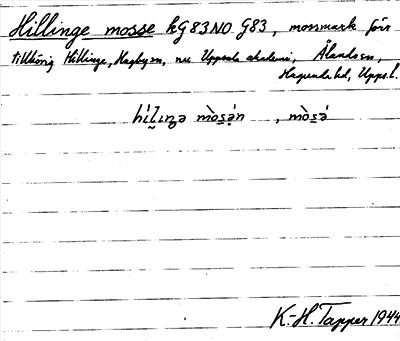 Hillinge mosse kG 83 NO G83, mossmark förr
tillhörig Hillinge, Hagbyn, nu Uppsala akademi, Ålands sn,
Hagunda hd, Upps. l.
hi̬lıŋə mòsə́n , mòsə́
K.-H. Tapper 1944